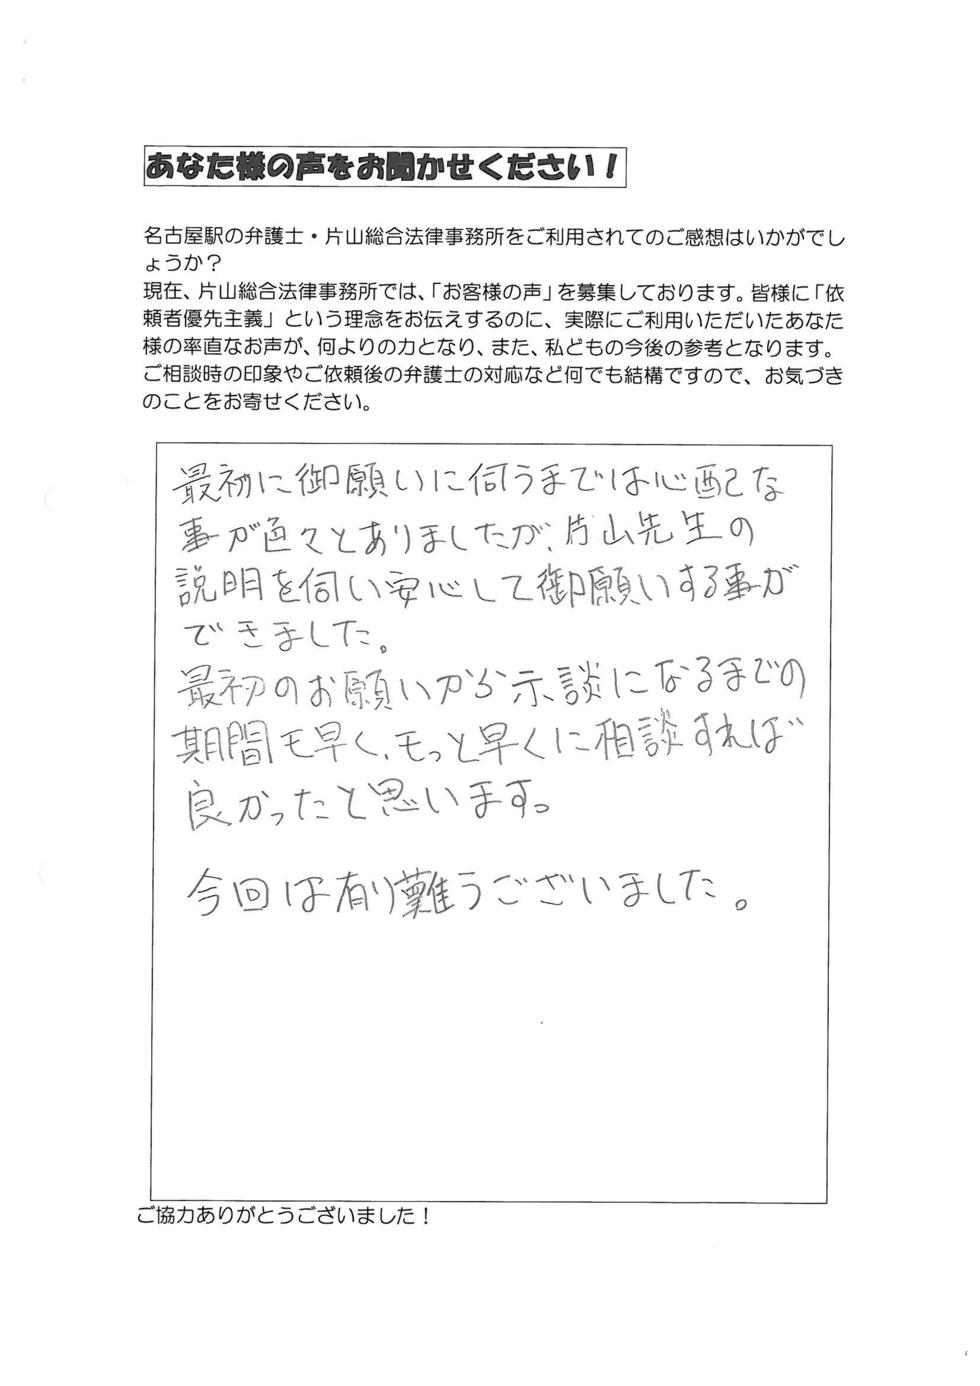 あなた様の声をお聞かせください！
名古屋駅の弁護士・片山総合法律事務所をご利用されてのご感想はいかがでし
ょうか？
現在、片山総合法律事務所では、「お客様の声」を募集しております。皆様に「依
頼者優先主義」という理念をお伝えするのに、実際にご利用いただいたあなた
様の率直なお声が、何よりの力となり、また、私どもの今後の参考となります。
ご相談時の印象やご依頼後の弁護士の対応など何でも結構ですので、お気づき
のことをお寄せください。
最初に御願いに伺うまでは心配な
事が色々とありましたが、片山先生の
説明を伺い安心して御願いする事が
できました。
最初のお願いから示談になるまでの
期間も早く、もっと早くに相談すれば
良かったと思います。
今回は有り難うございました。
ご協力ありがとうございました！